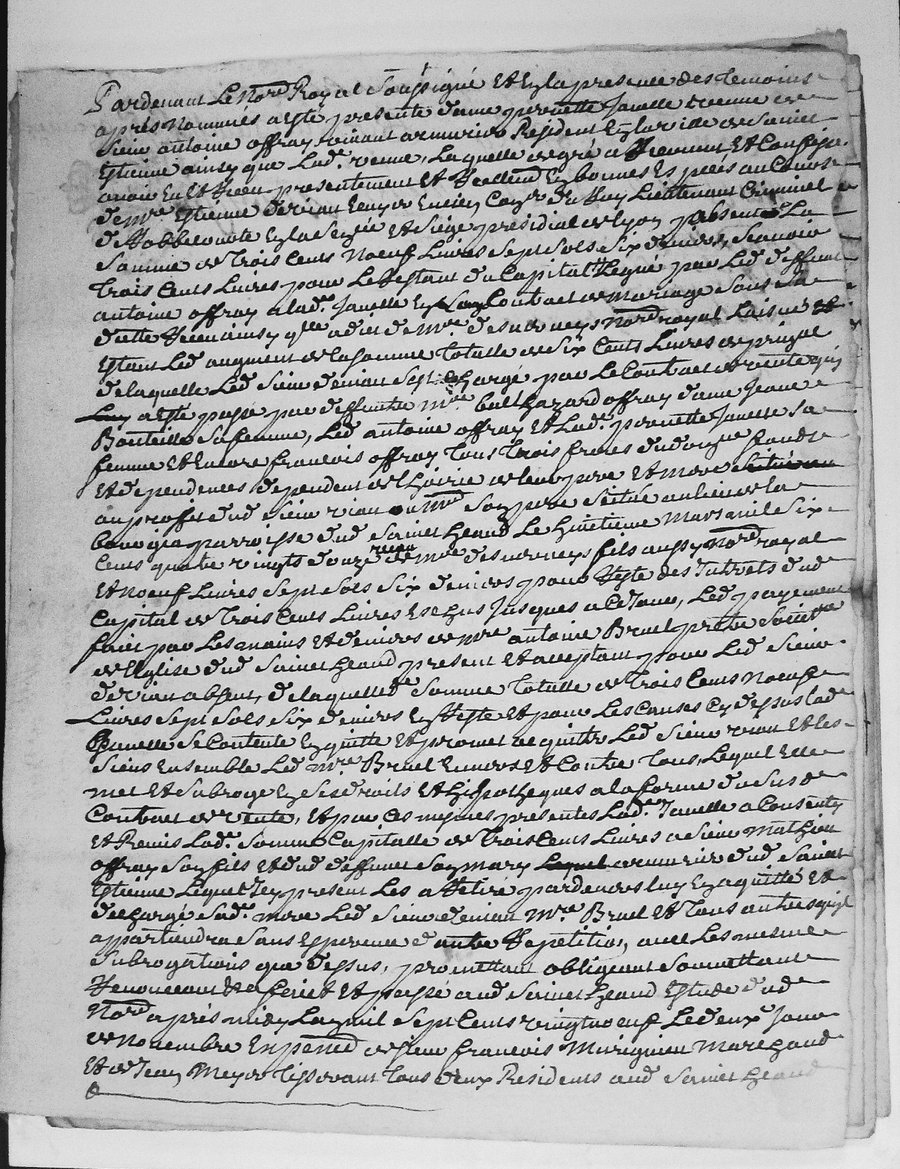 Pardevant Le Nore Royal Soussigné Et En la presence des temoins
apres Nommés a esté presente dame pernette Janelle veuve de
Sieur antoine offray vivant armurier Resident En la ville de Saint
Estienne ainsy que Lade. veuve, Laquelle de gré a Reconnu Et Confessé
avoir Eu Et Receu presentement Et Reellement En bonnes Espèces au Cours
de Mre Estienne derian Ecuyer Coner du Roy Lieutenant Criminel
de Robbe courte En la Senéée Et Siège présidial de Lyon, absent La
Somme de Trois Cents Neuf Livres Sept Sols Six deniers, Scavoir
Trois Cents Livres pour Le Restant du Capital Legué par Led. deffunt
antoine offray a lade. Janelle En Son Contract de Mariage Sous Sa
datte Receu ainsy qu'elle a dit de Mre. desverneys Nore royal Laisné Et
Estant Led augment de la Somme Totalle de Six Cents Livres de prix
de laquelle Led Sieur derian Est Chargé par Le Contract de vente qui
Luy a esté passé par deffuntz Mre. balthazard offray dame Jeane
Bouteille Sa femme, Led antoine offray Et Lade. pernette Janelle Sa
femme Et Encore francois offray Tous Trois freres dud. fonds
Et dependences dependent de L'hoirie de leur pere Et Mere
au proffit dud Sieur rian Son pere Scitué au lieu de la
parroisse dud Saint heand Le huitieme Mars mil Six
Cents quatre vingts douze receu de Mre desverneys fils aussy Nore royal
Et Neuf Livres Sept Sols Six deniers pour Reste des Interets dud
Capital de Trois Cents Livres Eschus Jusques a Ce Jour, Led. payement
fait par Les mains Et deniers de Mre antoine Bruel prebtre Societtre
de L'Eglise dud Saint heand present Et acceptant pour Led Sieur
derian absent, de laquelle de Somme Totalle de Trois Cents Neuf
Livres Sept Sols Six deniers En Reste Et pour Les Causes Cy dessus lade
Janelle Se Contente En quitte Et promet de quitter Led. Sieur rian Et les
Siens Ensemble Led. Mre. Bruel Envers Et Contre Tous, Lequel Elle
met Et Subroge En Ses droits Et hipotheques a la forme du Susd
Contract de vente, Et par Ces mesmes presentes Lade. Janelle a Consenty
Et Remis Lade. Somme Capitalle de Trois Cents Livres a Sieur Mathieu
offray Son fils Et dud deffunct Son Mary armurier dud. Saint
Estienne Lequel Icy present Les a Retiré pardevers luy En a quitté Et
dechargé Sade. mere Led. Sieur derian Mre Bruel Et Tous autres qu'il
appartiendra Sans Esperence d'autre Repetition, avec Les mesmes
Subrogations que dessus, promettant obligeant Soumettant
Renonceant Ee fait Et passé aud Saint heand Estude dud
Nore apres midy Lan mil Sept Cents vingt neuf Le deuxe Jour
de Novembre En pence de Sieur francois Murignieu Marchand
Et de Jean Meyer Tisserant Tous deux Residents aud Saint heand